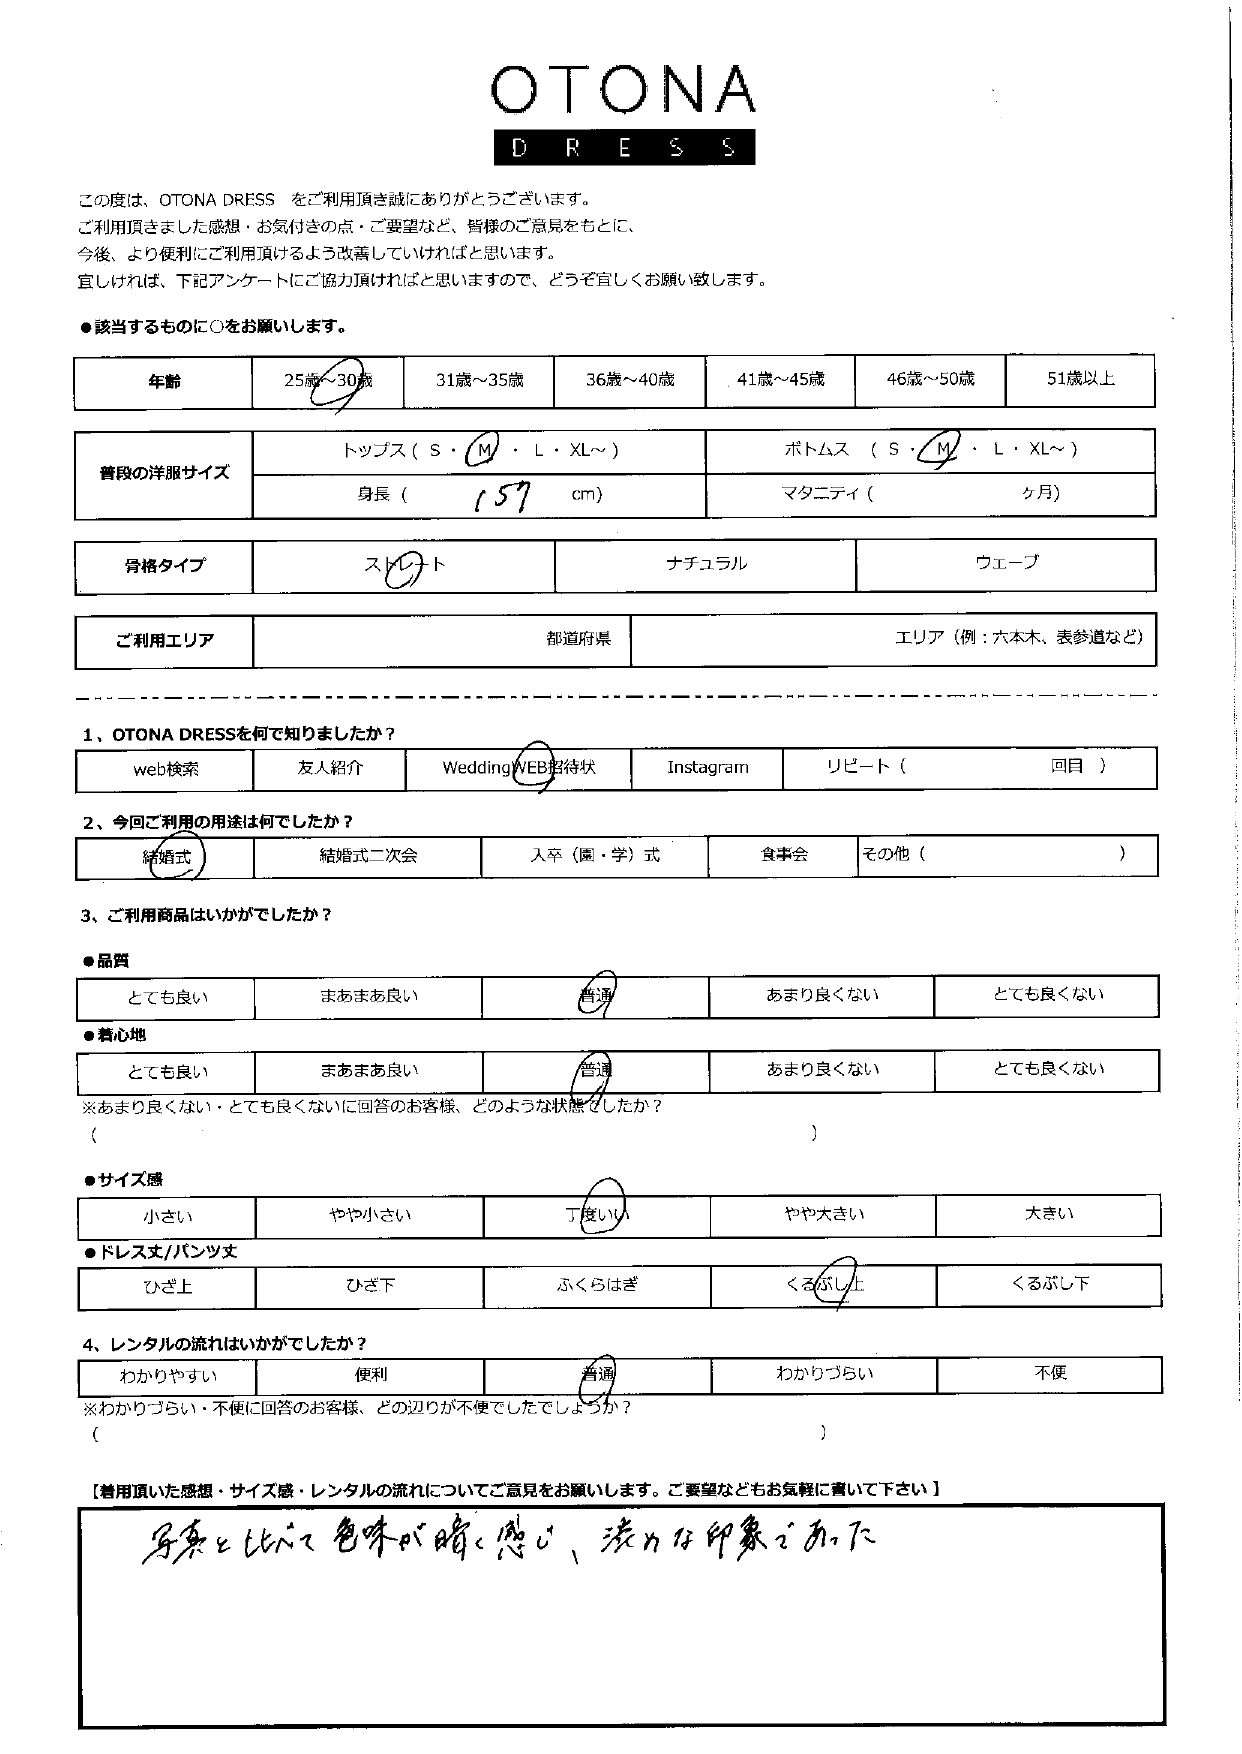 OTONA
DRESS
この度は、OTONA DRESS　をご利用頂き誠にありがとうございます。
ご利用頂きました感想・お気付きの点・ご要望など、皆様のご意見をもとに、
今後、より便利にご利用頂けるよう改善していければと思います。
宜しければ、下記アンケートにご協力頂ければと思いますので、どうぞ宜しくお願い致します。
●該当するものに○をお願いします。
年齢 25歳～30歳 31歳～35歳 36歳～40歳 41歳～45歳 46歳～50歳 51歳以上
普段の洋服サイズ トップス ( S ・ M ・ L ・ XL～ ) ボトムス ( S ・ M ・ L ・ XL～ )
身長 ( 157 cm) マタニティ ( ケ月)
骨格タイプ ストレート ナチュラル ウェーブ
ご利用エリア 都道府県 エリア（例：六本木、表参道など）
1、OTONA DRESSを何で知りましたか？
web検索 友人紹介 WeddingWEB招待状 Instagram リピート（ 回目 ）
2、今回ご利用の用途は何でしたか？
結婚式 結婚式二次会 入卒（園・学）式 食事会 その他（ ）
3、ご利用商品はいかがでしたか？
●品質
とても良い まあまあ良い 普通 あまり良くない とても良くない
●着心地
とても良い まあまあ良い 普通 あまり良くない とても良くない
※あまり良くない・とても良くないに回答のお客様、どのような状態でしたか？
( )
●サイズ感
小さい やや小さい 丁度いい やや大きい 大きい
●ドレス丈/パンツ丈
ひざ上 ひざ下 ふくらはぎ くるぶし上 くるぶし下
4、レンタルの流れはいかがでしたか？
わかりやすい 便利 普通 わかりづらい 不便
※わかりづらい・不便に回答のお客様、どの辺りが不便でしたでしょうか？
( )
【着用頂いた感想・サイズ感・レンタルの流れについてご意見をお願いします。ご要望などもお気軽に書いて下さい】
写真と比べて色味が暗く感じ、渋めな印象であった